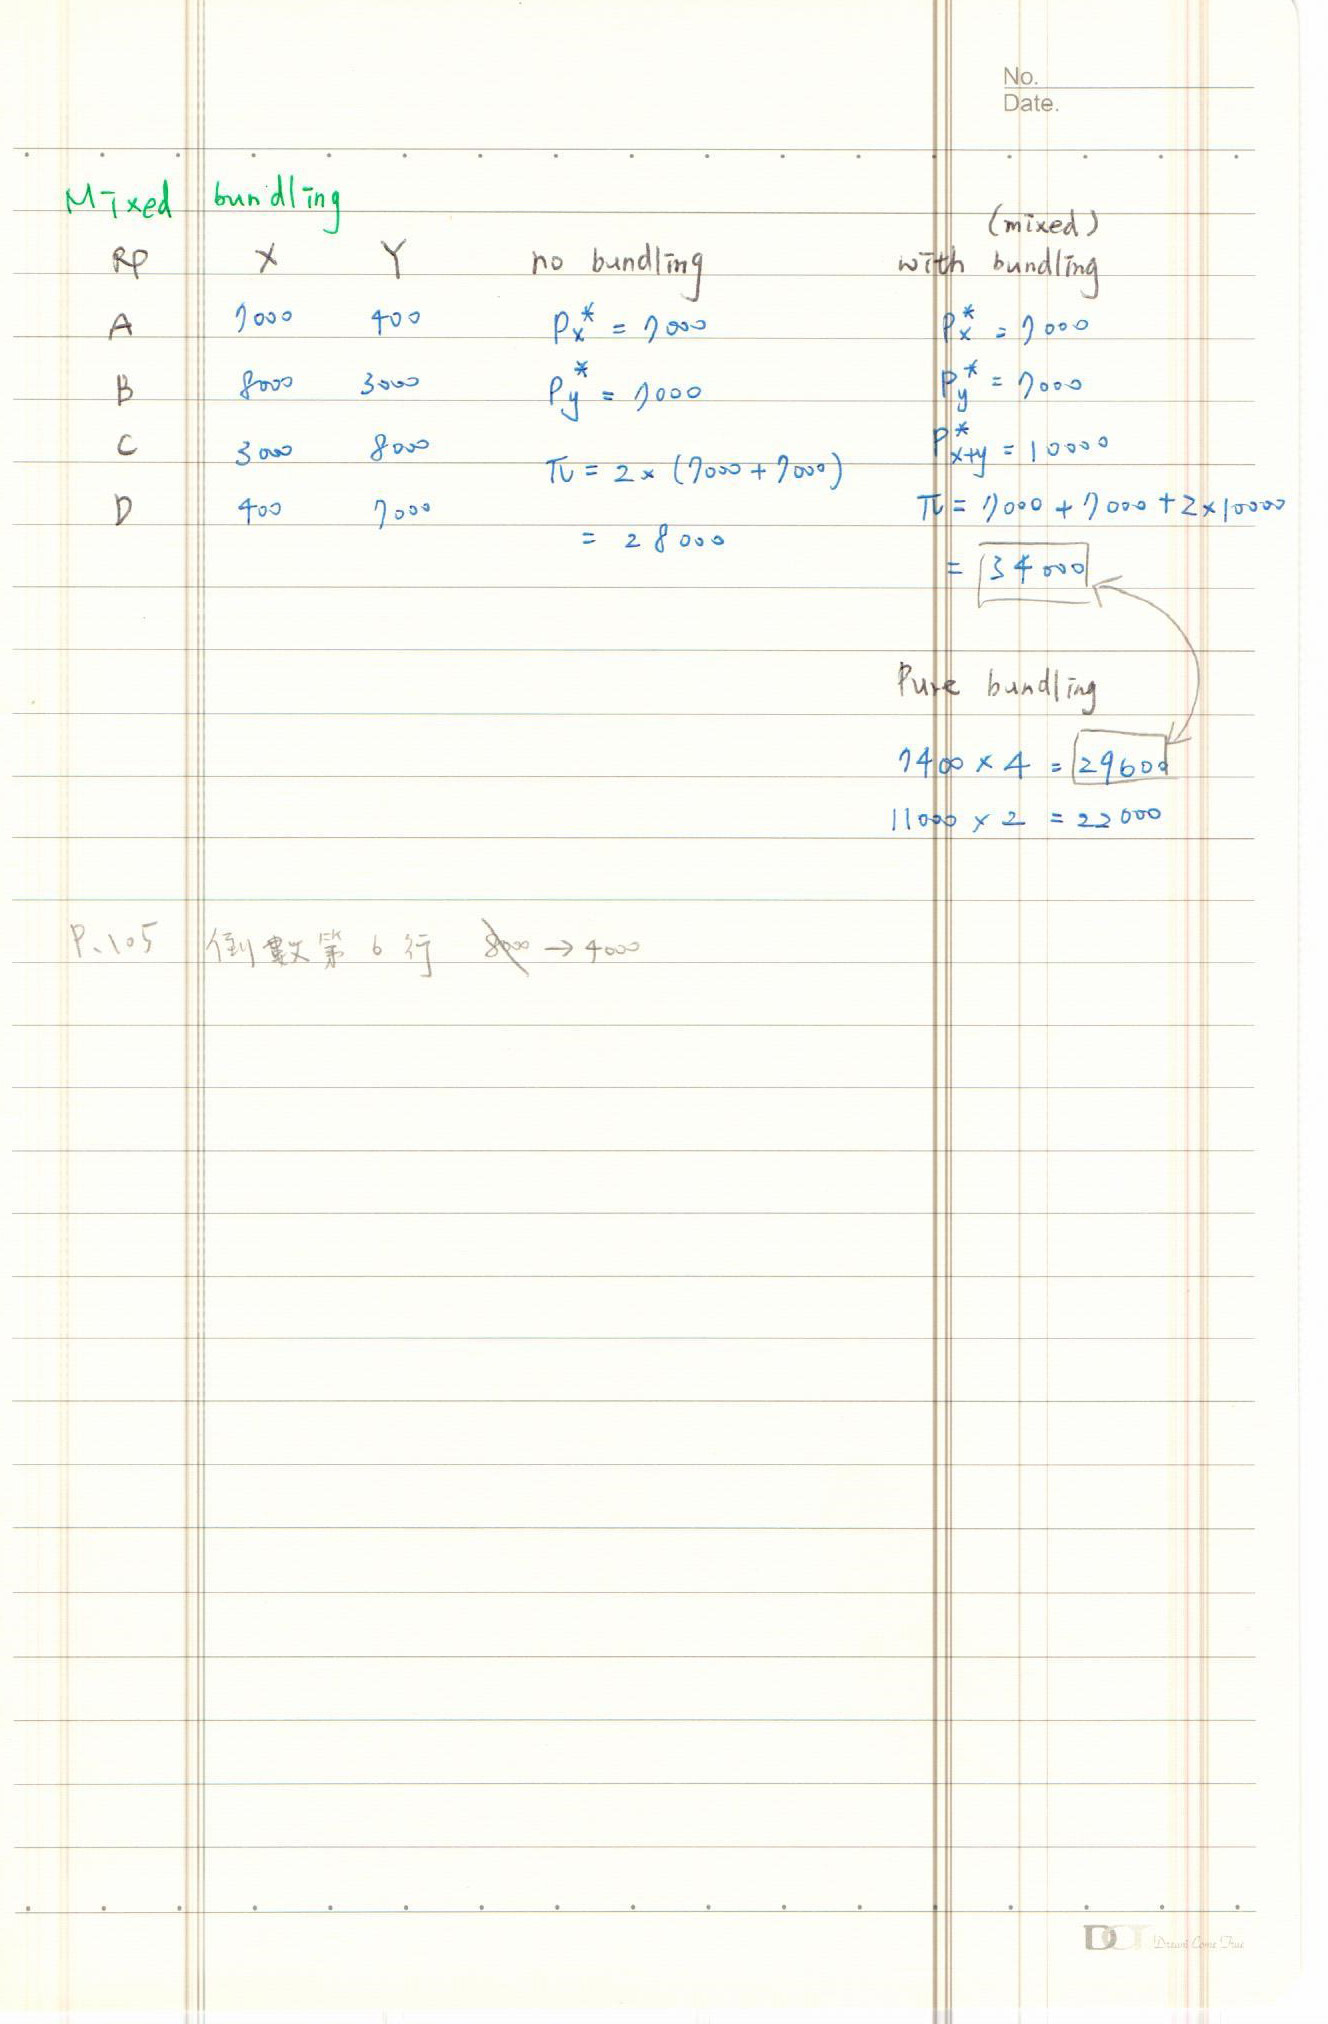 No.
Date.
Mixed bundling
(mixed)
RP X Y no bundling with bundling
A 7000 400 Px* = 7000 Px* = 7000
B 8000 3000 Py* = 7000 Py* = 7000
C 3000 8000 π = 2 × (7000 + 7000) P*x+y = 10000
D 400 7000 = 28000 π = 7000 + 7000 + 2 × 10000
= 34000
Pure bundling
7400 × 4 = 29600
11000 × 2 = 22000
P.105 倒數第 6 行 8000 → 4000
DCT Dream Come True